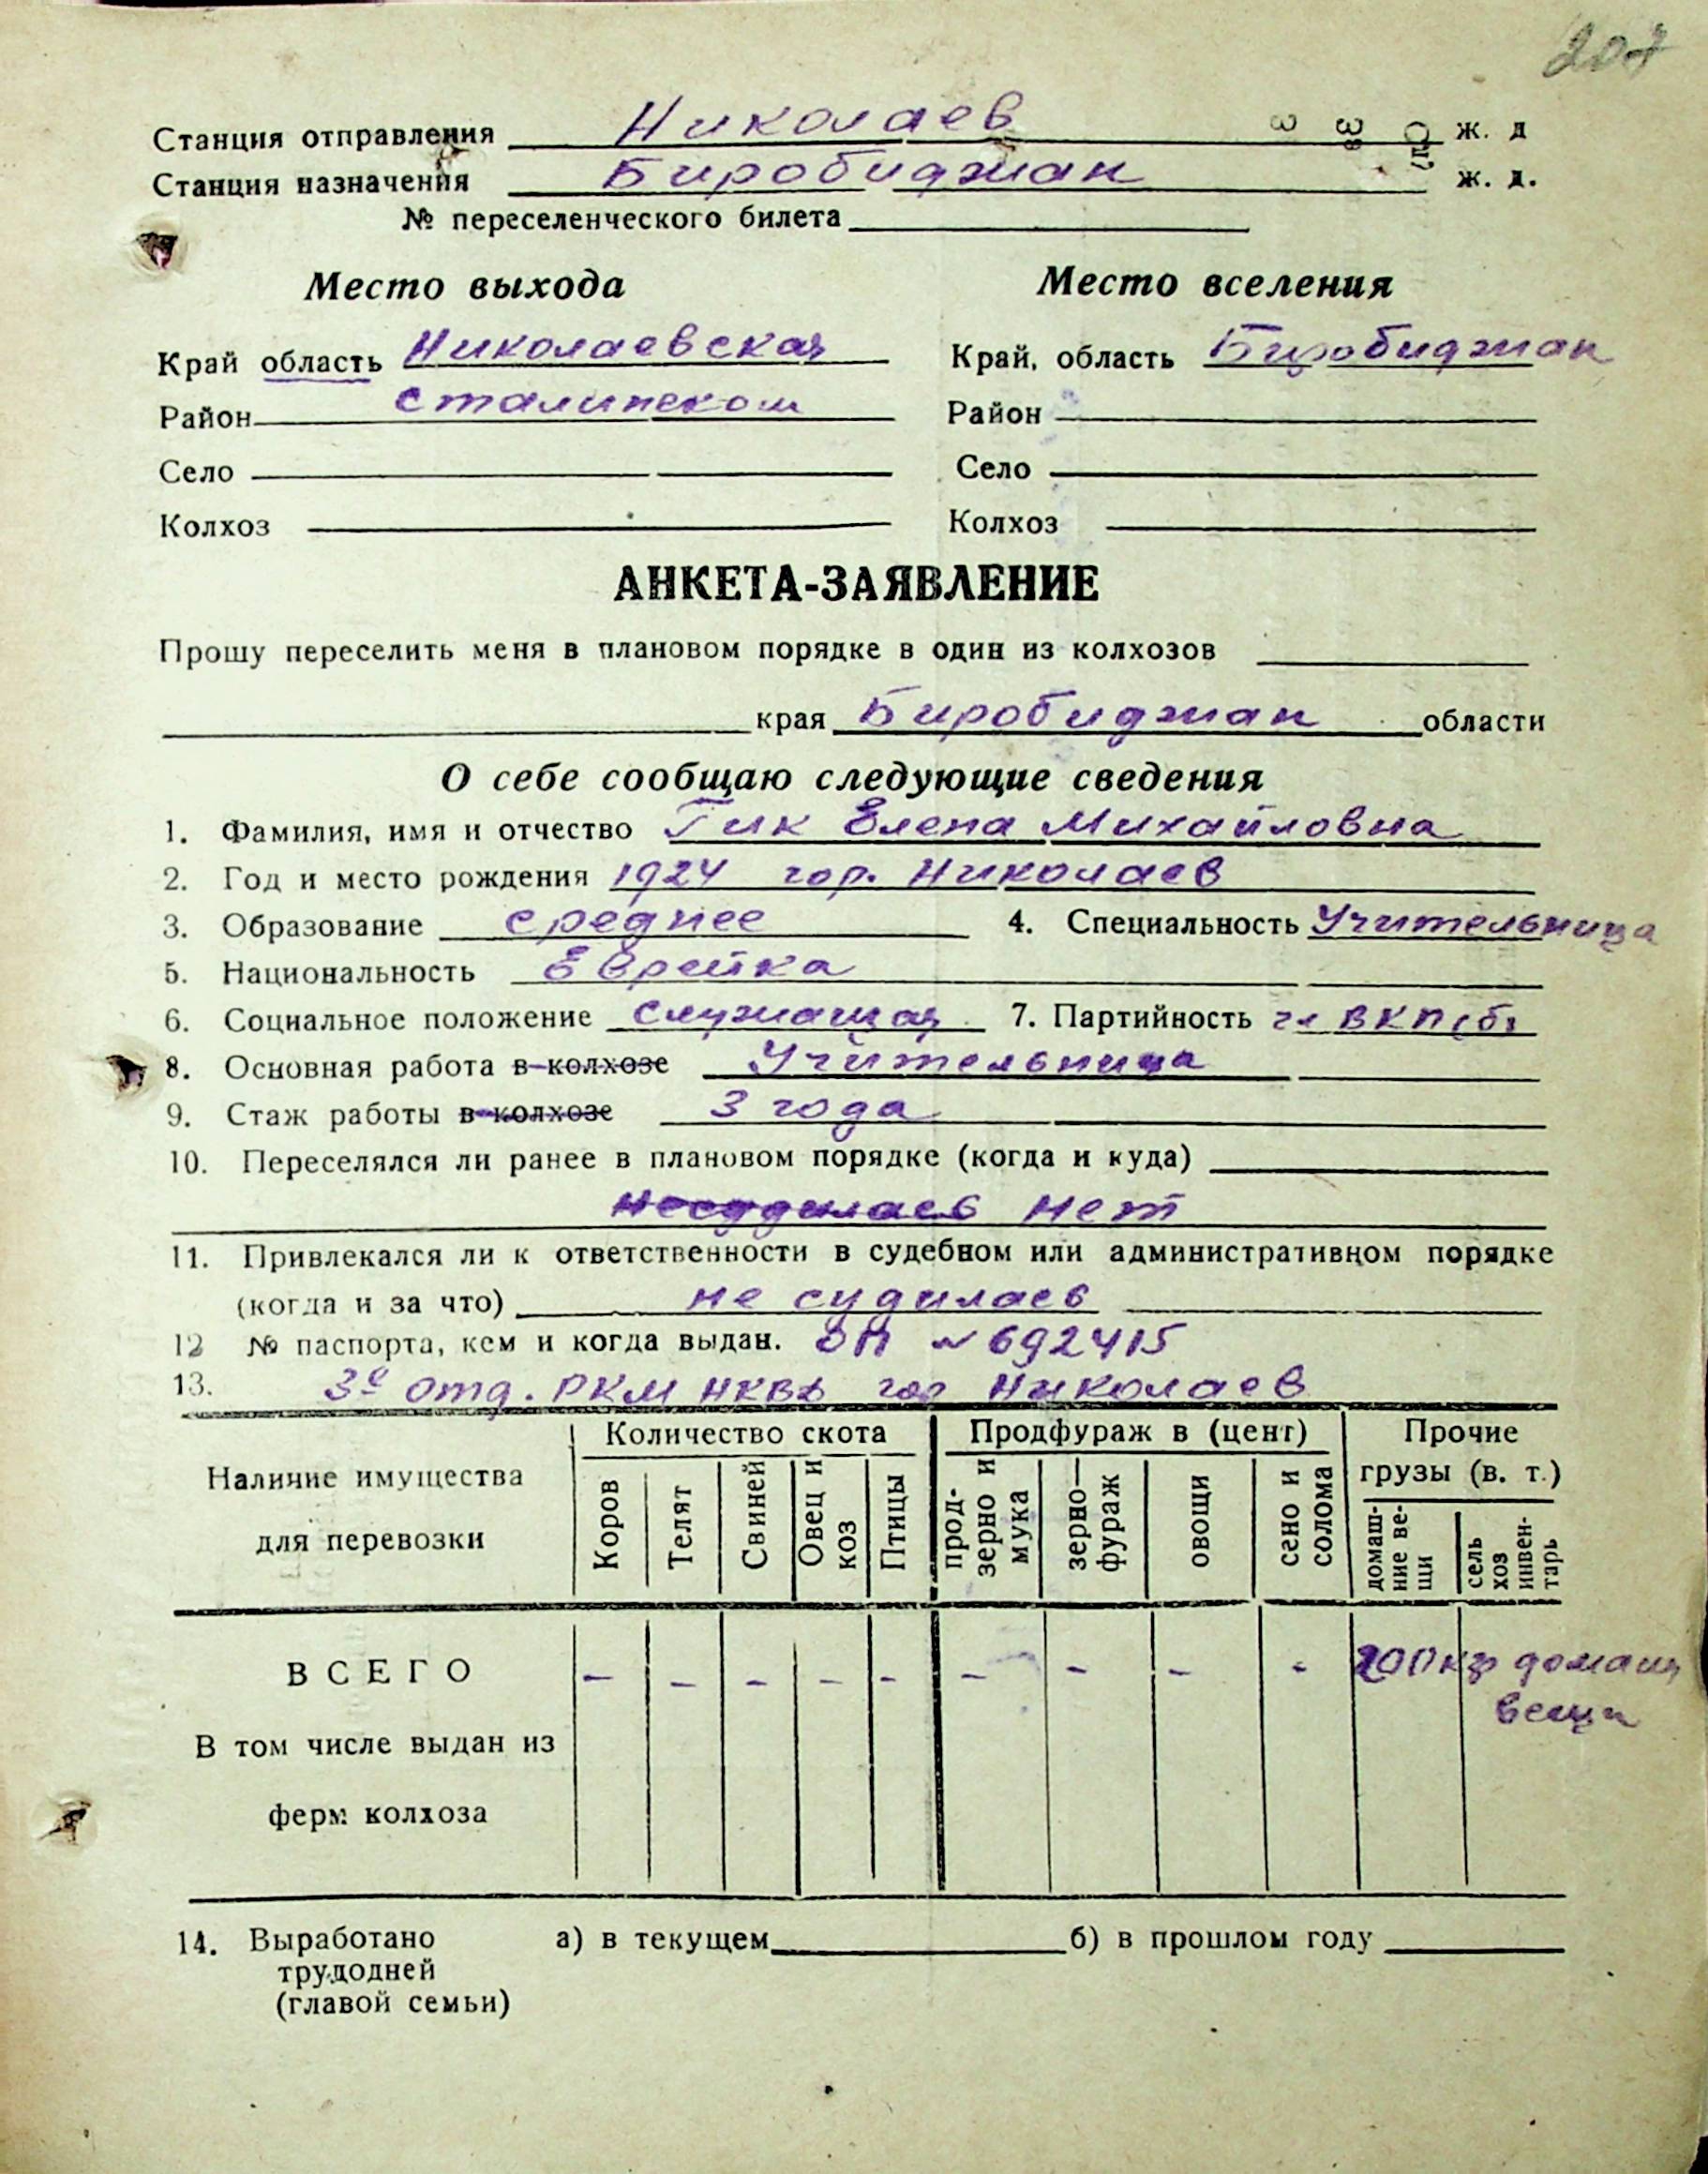 207
Станция отправления Николаев ж. д
Станция назначения Биробиджан ж. д.
№ переселенческого билета
Место выхода Место вселения
Край область Николаевская Край, область Биробиджан
Район Сталинском Район
Село Село
Колхоз Колхоз
АНКЕТА-ЗАЯВЛЕНИЕ
Прошу переселить меня в плановом порядке в один из колхозов
края Биробиджан области
О себе сообщаю следующие сведения
1. Фамилия, имя и отчество Гик Елена Михайловна
2. Год и место рождения 1924 гор. Николаев
3. Образование среднее 4. Специальность Учительница
5. Национальность Еврейка
6. Социальное положение Служащая 7. Партийность чл ВКП(б)
8. Основная работа в колхозе Учительница
9. Стаж работы в колхозе 3 года
10. Переселялся ли ранее в плановом порядке (когда и куда)
Несудилась Нет
11. Привлекался ли к ответственности в судебном или административном порядке
(когда и за что) не судилась
12 № паспорта, кем и когда выдан. № 692415
13. 3е отд. РКМ НКВД гор Николаев
Наличие имущества для перевозки Количество скота Продфураж в (цент) Прочие грузы (в. т.)
Коров Телят Свиней Овец и коз Птицы прод-зерно и мука зерно—фураж овощи сено и солома домаш-ние ве-щи сель хоз инвен-тарь
ВСЕГО - - - - - - - - - 200 кг домашн
вещи
В том числе выдан из
ферм колхоза
14. Выработано а) в текущем б) в прошлом году
трудодней
(главой семьи)